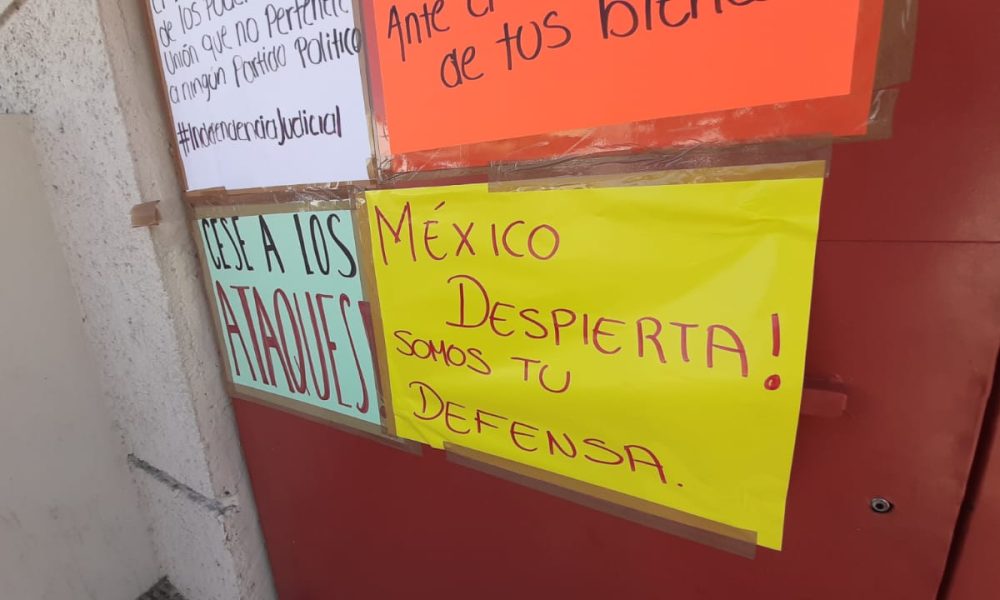 de los Poderes
Unión que no Pertenece
a ningún Partido Político
#IndependenciaJudicial
Ante
de tus bienes
CESE A LOS
ATAQUES!
MÉXICO
DESPIERTA!
SOMOS TU
DEFENSA.